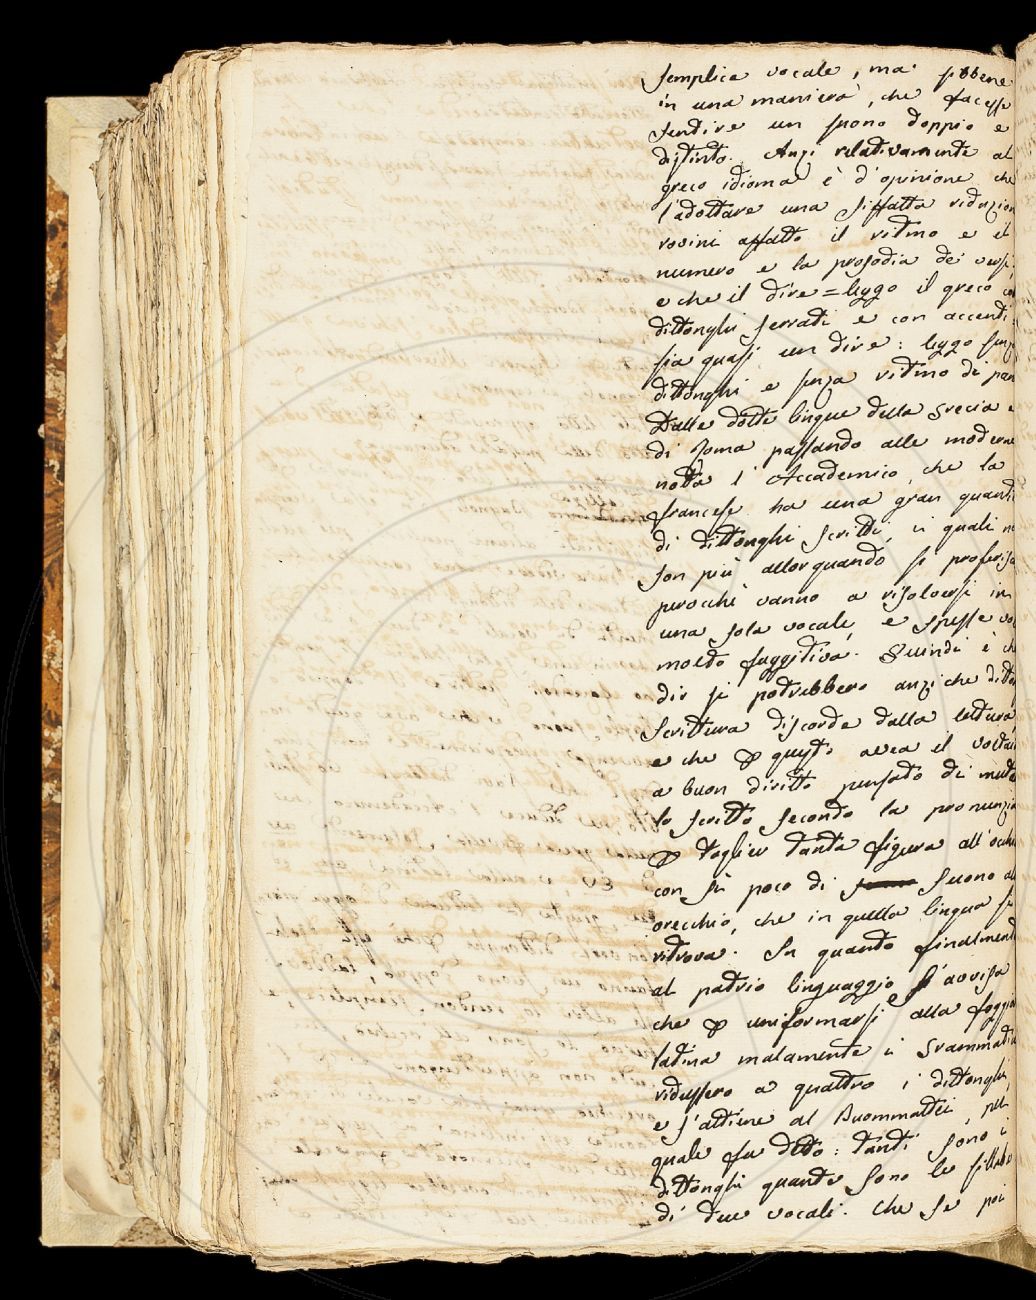 semplice vocale, ma sibbene
in una maniera, che facesse
sentire un suono doppio e
distinto. Anzi relativamente al
greco idioma è d'opinione che
l'adottare una siffatta riduzion
rovini affatto il ritmo e il
numero e la prosodia de' versi,
e che il dire = leggo il greco co
dittonghi serrati e con accenti
sia quasi un dire: leggo senza
dittonghi e senza ritmo di par
Dalle dotte lingue della Grecia e
di Roma passando alle moderne
nota l'Accademico, che la
francese ha una gran quanti
di dittonghi scritti, i quali no
son più allorquando si proferisc
perocchè vanno a risolversi in
una sola vocale, e spesse vo
molto fuggitiva. Quindi è ch
dir si potrebbero anzichè ditto
scrittura discorde dalla lettura,
e che p questo avea il Voltai
a buon diritto pensato di muta
lo scritto secondo la pronunzia
p toglier tanta figura all'occhi
con sì poco di suono al
orecchio, che in quella lingua si
ritrova. In quanto finalment
al patrio linguaggio s'avvisa
che p uniformarsi alla foggia
latina malamente i Grammatic
ridussero a quattro i dittonghi,
e s'attiene al Buommattei, pel
quale fu detto: tanti sono i
dittonghi quante sono le sillabe
di due vocali. Che se poi